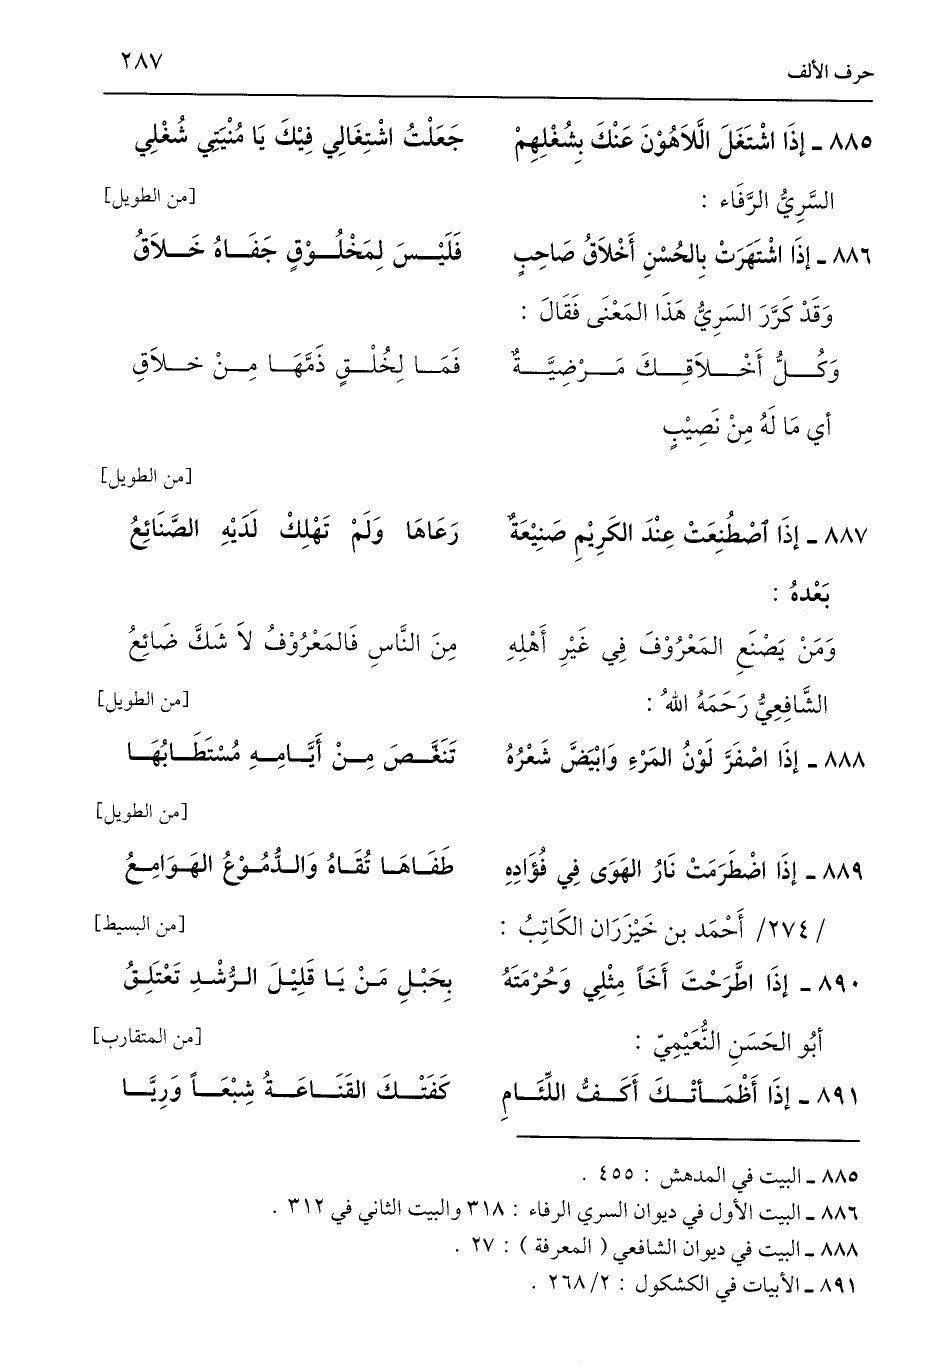 حرف الألف ٢٨٧
٨٨٥ ـ إذَا اشْتَغَلَ الَّلاَهُوْنَ عَنْكَ بِشُغْلِهِمْ جَعَلْتُ اشْتِغَالِي فِيْكَ يَا مُنْيَتِي شُغْلِي
السَّرِيُّ الرَّفَاء : [من الطويل]
٨٨٦ ـ إذَا اشْتَهَرَتْ بِالحُسْنِ أَخْلاَقُ صَاحِبٍ فَلَيْسَ لِمَخْلُوْقٍ جَفَاهُ خَلاَقُ
وَقَدْ كَرَّرَ السَرِيُّ هَذَا المَعْنَى فَقَالَ :
وَكُلُّ أَخْلاَقِكَ مَرْضِيَّةٌ فَمَا لِخُلْقٍ ذَمَّهَا مِنْ خلاَقِ
أي مَا لَهُ مِنْ نَصِيْبٍ
[من الطويل]
٨٨٧ ـ إذَا ٱصْطُنِعَتْ عِنْدَ الكَرِيْمِ صَنِيْعَةٌ رَعَاهَا وَلَمْ تَهْلِكْ لَدَيْهِ الصَّنَائِعُ
بَعْدهُ :
وَمَنْ يَصْنَعِ المَعْرُوْفَ فِي غَيْرِ أَهْلِهِ مِنَ النَّاسِ فَالمَعْرُوْفُ لاَ شَكَّ ضَائِعُ
الشَّافِعِيُّ رَحَمَهُ اللهُ : [من الطويل]
٨٨٨ ـ إذَا اصْفَرَّ لَوْنُ المَرْءِ وَابْيَضَّ شَعْرُهُ تَنَغَّصَ مِنْ أَيَّامِهِ مُسْتَطَابُهَا
[من الطويل]
٨٨٩ ـ إذَا اضْطَرَمَتْ نَارُ الهَوَى فِي فُؤَادِهِ طَفَاهَا تُقَاهُ وَالدُّمُوْعُ الهَوَامِعُ
/ ٢٧٤/ أَحْمَد بن خَيْزَرَان الكَاتِبُ : [من البسيط]
٨٩٠ ـ إذَا اطَّرَحْتَ أَخَاً مِثْلِي وَحُرْمَتَهُ بِحَبْلِ مَنْ يَا قَلِيْلَ الرُّشْدِ تَعْتَلِقُ
أبُو الحَسَنِ النُّعَيْمِيّ : [من المتقارب]
٨٩١ ـ إذَا أَظْمَأتْكَ أَكَفُّ اللِّئَامِ كَفَتْكَ القَنَاعَةُ شِبْعَاً وَرِيَّا
٨٨٥ ـ البيت في المدهش : ٤٥٥ .
٨٨٦ ـ البيت الأول في ديوان السري الرفاء : ٣١٨ والبيت الثاني في ٣١٢ .
٨٨٨ ـ البيت في ديوان الشافعي ( المعرفة ) : ٢٧ .
٨٩١ ـ الأبيات في الكشكول : ٢/ ٢٦٨ .